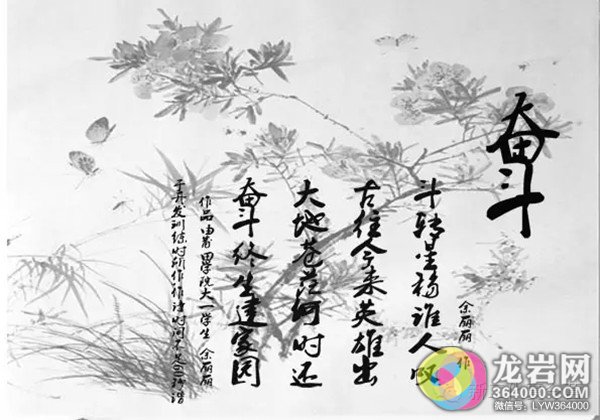 奋斗
余丽丽 作
斗转星移谁人叹
古往今来英雄出
大地苍茫何时还
奋斗终生建家园
作品由莆田学院大一学生 余丽丽
训练时所作作诗时间不足
龙岩网
364000.com
微信号: LYW364000